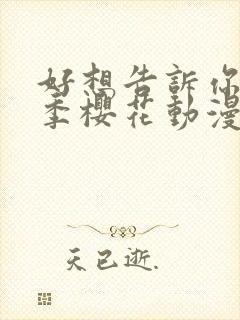 好想告訴你
季櫻花動漫
天已逝.